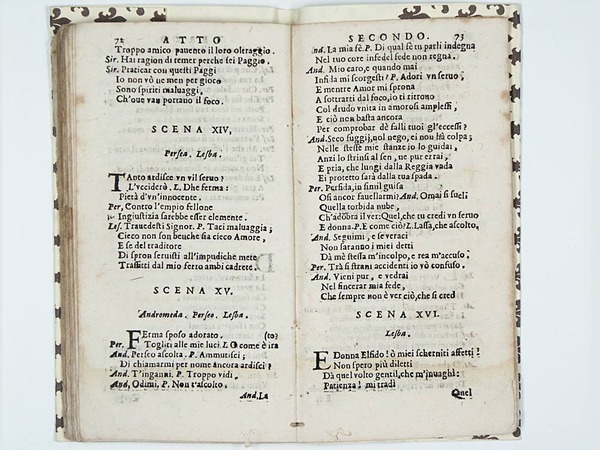 72 ATTO
Troppo amico pavento il loro oltraggio.
Sir. Hai ragion di temer perche sei Paggio.
Sir. Praticar con questi Paggi
Io non vò ne men per gioco
Sono spiriti malvaggi,
Ch'oue van portano il foco.
SCENA XIV.
Persea. Lesba.
TAnto ardisce vn vil seruo?
L'vcciderò. L. Dhe ferma:
Pietà d'vn'innocente.
Per, Contro l'empio fellone
Ingiustitia sarebbe esser clemente.
Les. Trauedesti Signor. P. Taci maluaggia;
Cieco non son benche sia cieco Amore,
E se del traditore
Di spron seruisti all'impudiche mete
Trafitti dal mio ferro ambi cadrete.
SCENA XV.
Andromeda. Perseo. Lesba.
FErma sposo adorato. (to?
Per. Togliti alle mie luci. L O come è ira
And. Perseo ascolta. P. Ammutisci;
Di chiamarmi per nome ancora ardisci?
And. T'inganni. P. Troppo vidi,
And, Odimi. P. Non t'ascolto.
And. La
SECONDO. 73
And. La mia fè. P. Di qual fè tu parli indegna
Nel tuo core infedel fede non regna.
And. Mio caro, e quando mai
Infida mi scorgesti? P. Adori vn seruo;
E mentre Amor mi sprona
A sottrarti dal foco, io ti ritrouo
Col drudo vnita in amorosi amplessi,
E ciò non basta ancora
Per comprobar dè falli tuoi gl'eccessi?
And. Seco fuggij, nol nego, ei non hà colpa;
Nelle stesse mie stanze io lo guidai,
Anzi lo strinsi al sen, ne pur errai,
E pria, che lungi dalla Reggia vada
Ei protetto sarà dalla tua spada.
Per. Perfida, in simil guisa
Osi ancor fauellarmi? And. Omai si sueli
Quella torbida nube,
Ch'adōbra il ver: Quel, che tu credi vn seruo
E donna. P. E come ciò? L. Lassa, che ascolto,
And. Seguimi, e se veraci
Non saranno i miei detti
Dà mè stessa m'incolpo, e rea m'accuso.
Per. Trà si strani accidenti io vò confuso.
And. Vieni pur, e vedrai
Nel sincerar mia fede,
Che sempre non è ver ciò, che si cred
SCENA XVI.
Lesba.
E Donna Elfido! ò miei scherniti affetti!
Non spero più diletti
Dà quel volto gentil, che m'inuaghì:
Patienza! mi tradì
Quel